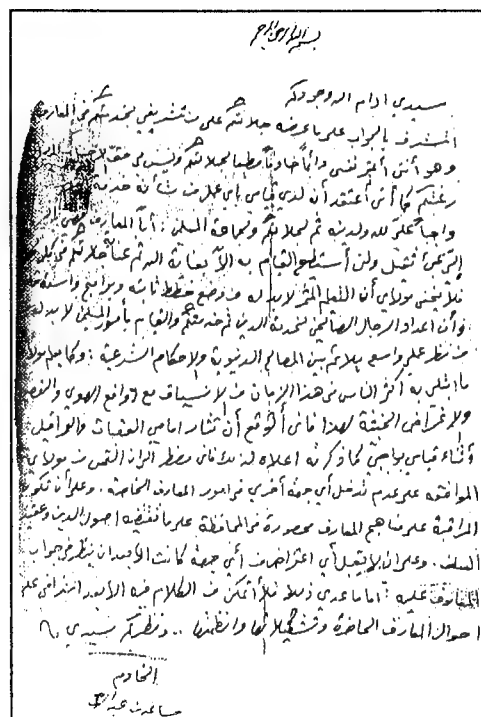 بسم الله الرحمن الرحيم
سيدي ادام الله وجودكم
أتشرف بالجواب على ما عرضه جلالتكم على من تشريفي بخدمتكم في المعارف
وهو أنني أعتبر نفسي دائماً خادماً مطيعاً لجلالتكم وليس لي حق
رغبتكم كما أنني أعتقد أن لدى قيامي بأي عمل من شأنه خدمة
واجباً عليّ لله ولدينه ثم لجلالتكم ولكافة المسلمين : أما المعارف
ثقيل ولن أستطيع القيام به إلا بإعانة الله ثم جلالتكم
فلا يخفى مولاي أن التعليم المثمر لا بد له من وضع خطط ثابتة وبرامج واسعة
وأن اعداد الرجال الصالحين لخدمة الدين ثم خدمتكم والقيام بأمور المسلمين لابد له
من نظر علمي واسع يلائم بين المصالح الدنيوية والاحكام الشرعية : وكما يعلم مولاي
ما ابتلي به أكثر الناس في هذا الزمان من الانسياق مع دوافع الهوى
والاغراض الخفية لهذا فاني أتوقع أن تثار امامي العقبات والعراقيل
وأثناء قيامي بواجبي كما ذكرته اعلاه لذلك فاني مضطر إلى أن ألتمس من مولاي
الموافقة على عدم تدخل أي جهة أخرى في امور المعارف الخاصة . وعلى أن تكون
المراقبة على مناهج المعارف محصورة في المحافظة على ما تقتضيه اصول الدين وعقيدة
السلف . وعلى ان لا يقبل أي اعتراض من أي جهة كانت الا بعد ان ينظر في جواب
عليه : اما ما عدى ذلك فلا أتمكن من الكلام فيه إلا بعد اشرافي على
احوال المعارف الحاضرة وتشكيلاتها وانظمتها .. سيدي
الخادم
مساعد بن عبد الرحمن